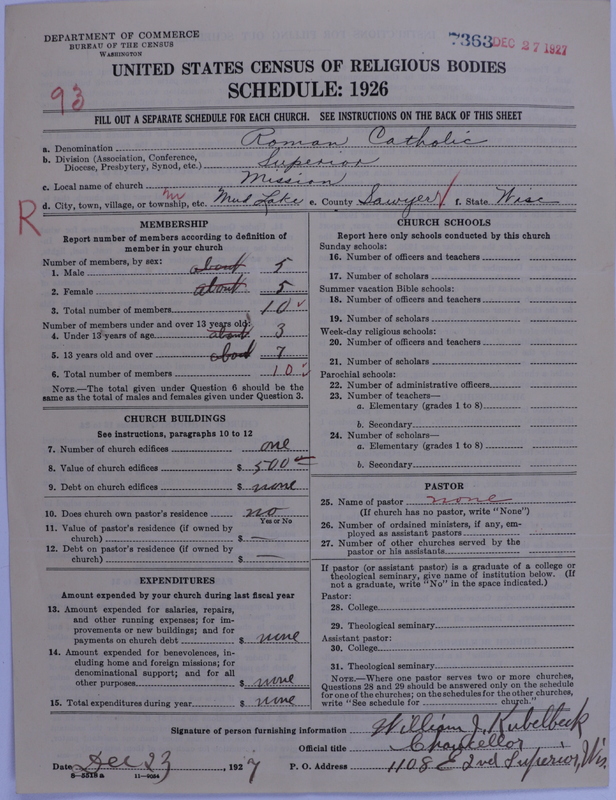 DEPARTMENT OF COMMERCE
BUREAU OF THE CENSUS
WASHINGTON
7363 DEC 27 1927
UNITED STATES CENSUS OF RELIGIOUS BODIES
SCHEDULE: 1926
93
FILL OUT A SEPARATE SCHEDULE FOR EACH CHURCH. SEE INSTRUCTIONS ON THE BACK OF THIS SHEET
a. Denomination Roman Catholic
b. Division (Association, Conference, Diocese, Presbytery, Synod, etc.) Superior
c. Local name of church Mission
d. City, town, village, or township, etc. Mud Lake e. County Sawyer f. State Wisc
R
MEMBERSHIP
Report number of members according to definition of
member in your church
Number of members, by sex:
1. Male about 5
2. Female about 5
3. Total number of members 10
Number of members under and over 13 years old:
4. Under 13 years of age about 3
5. 13 years old and over about 7
6. Total number of members 10
NOTE.—The total given under Question 6 should be
same as the total of males and females given under Question 3.
CHURCH BUILDINGS
See instructions, paragraphs 10 to 12
7. Number of church edifices one
8. Value of church edifices $ 500
9. Debt on church edifices $ none
10. Does church own pastor's residence no
Yes or No
11. Value of pastor's residence (if owned by
church) $ —
12. Debt on pastor's residence (if owned by
church) $ —
EXPENDITURES
Amount expended by your church during last fiscal year
13. Amount expended for salaries, repairs,
and other running expenses; for im-
provements or new buildings; and for
payments on church debt $ none
14. Amount expended for benevolences, in-
cluding home and foreign missions; for
denominational support; and for all
other purposes $ none
15. Total expenditures during year $ none
CHURCH SCHOOLS
Report here only schools conducted by this church
Sunday schools:
16. Number of officers and teachers
17. Number of scholars
Summer vacation Bible schools:
18. Number of officers and teachers
19. Number of scholars
Week-day religious schools:
20. Number of officers and teachers
21. Number of scholars
Parochial schools:
22. Number of administrative officers
23. Number of teachers—
a. Elementary (grades 1 to 8)
b. Secondary
24. Number of scholars—
a. Elementary (grades 1 to 8)
b. Secondary
PASTOR
25. Name of pastor none
(If church has no pastor, write "None")
26. Number of ordained ministers, if any, em-
ployed as assistant pastors
27. Number of other churches served by the
pastor or his assistants
If pastor (or assistant pastor) is a graduate of a college or
theological seminary, give name of institution below. (If
not a graduate, write "No" in the space indicated.)
Pastor:
28. College
29. Theological seminary
Assistant pastor:
30. College
31. Theological seminary
NOTE.—Where one pastor serves two or more churches,
Questions 28 and 29 should be answered only on the schedule
for one of the churches; on the schedules for the other churches,
write "See schedule for church."
Signature of person furnishing information William J. Kubelbeck
Official title Chancellor
Date Dec 23, 1927 P. O. Address 1108 E 2nd Superior, Wis.
8—5518 a 11—9064